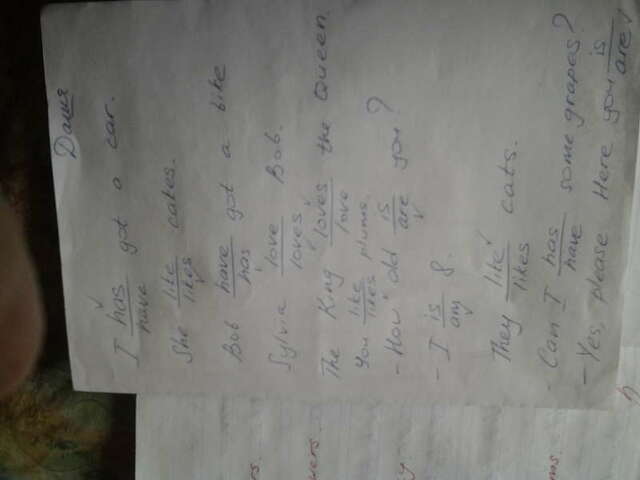 Даня
I has got a car.
have
She like cakes.
likes
Bob have got a bike
has
Sylvia love Bob.
loves
The King loves the Queen.
love
You like plums.
likes
- How old is you?
are
- I is 8.
am
They like cats.
likes
- Can I has some grapes?
have
- Yes, please Here you is
are